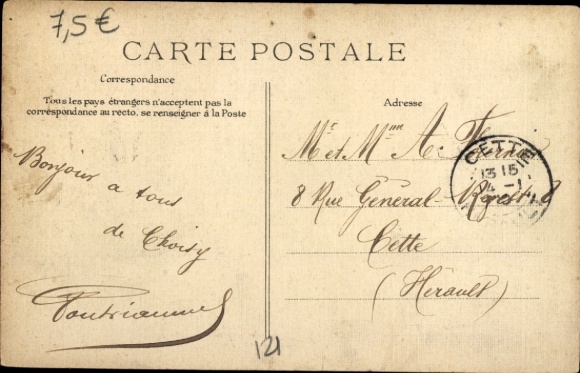 7,5 €
CARTE POSTALE
Correspondance
Tous les pays étrangers n'acceptent pas la
correspondance au recto, se renseigner à la Poste
Bonjour a tous
de Choisy
Adresse
Mr et Mme A.
8 Rue Général-
Cette
(Hérault)
CETTE
13 15
121